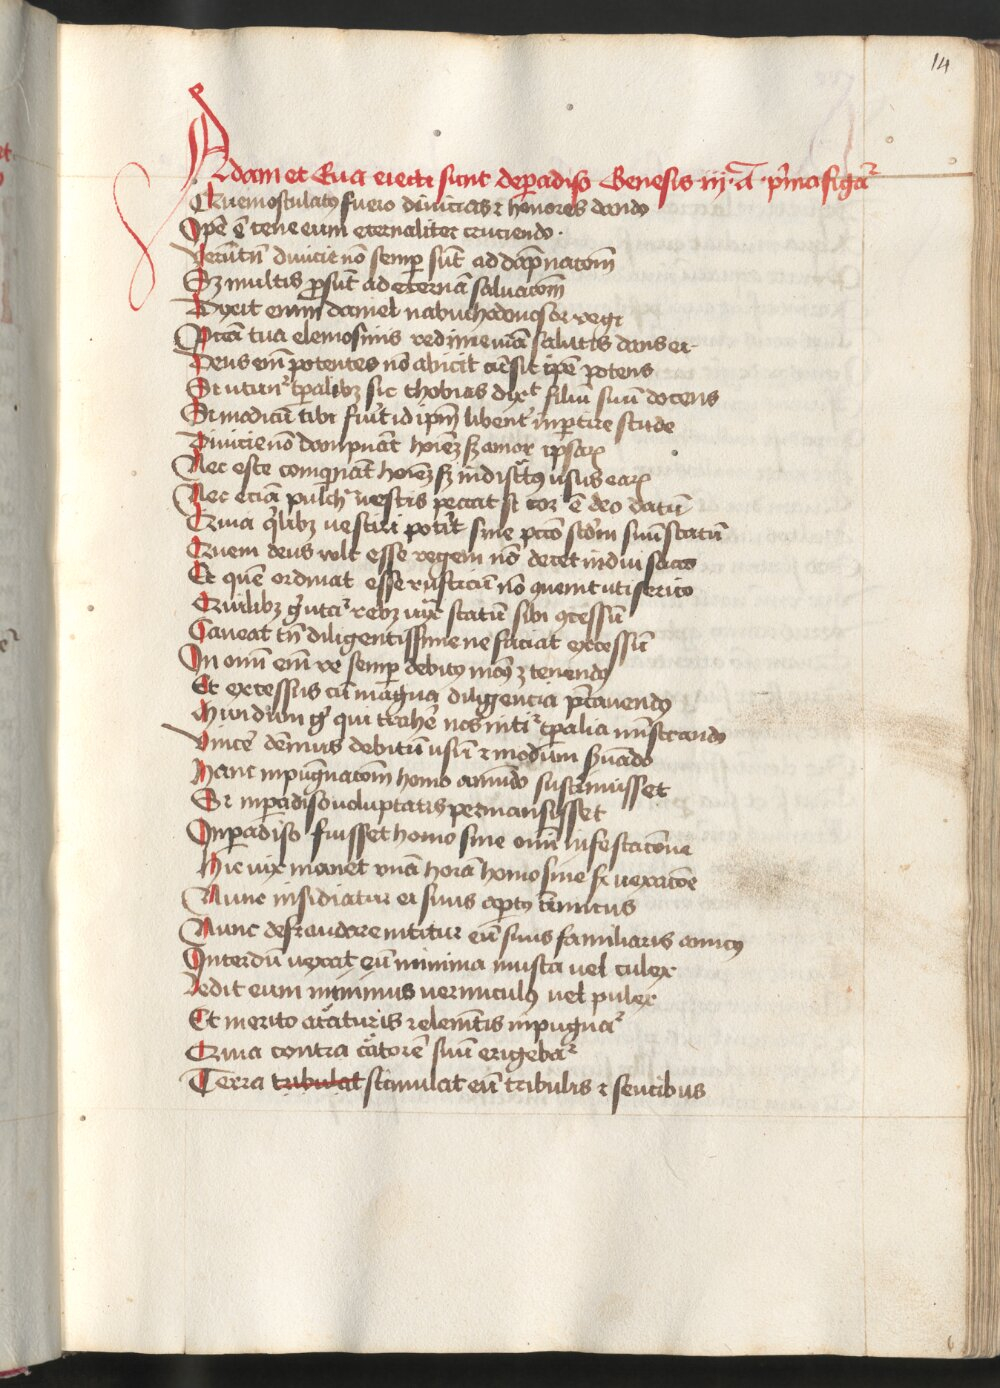 14
Adam et Eua eiecti sunt de ꝑadiso Genesis iij · cᷓ · pͥma figᷓaꝰ
Quem osculatꝰ fuero diuicias ⁊ honores dando
Ipē ē tene eum eternaliter cruciendo ·
Verūtn̄ diuicie nō semꝑ sūt ad dāpnacōm
Sꝫ multis ꝓsūt ad eternā saluacōm
Dyxit enim daniel nabuchodonosor regi
Pctā tua elemosinis redime uiā salutis dans ei
Deus em̄ potentes nō abicit cū sit ip̄e potens
Et utunt᷑ tꝑalibꝫ sic thobias dixᵗ filiū suū docens
Si modicū tibi fuīt id ip̄m libent᷑ inꝑtire stude
Diuicie nō dampnāt hoīeꝫ sꝫ amor ipsaꝝ
Nec este cōmqnāt hoīeꝫ sꝫ indisctꝰ usus eaꝝ
Nec eciā pulchᵃ uestis peccat si cor ē deo datū
Quia qͥlibꝫ uestiri pot̄it sine pctō scd̄m suū statū
Quem deus vult esse regem nō decet indui sacco
Et quē ordinat esse rusticū nō quenit uti serico
Quilibꝫ gͦ utat᷑ rebꝫ iux̄ statū sibi ꝯcessū
Caueat tn̄ diligentissime ne faciat excessū
In om̄i em̄ re semꝑ debitꝰ modꝰ ꝫ tenendꝰ
Et excessus cū magna diligencia p̄cauendꝰ
Mundum gͦ qui trahē nos nitit᷑ tꝑalia mīstrando
Vincē dēmus debitū usū ⁊ modum s̄uādo
Hanc inpugnacōm homo omnīdo sustinuisset
Si in ꝑadiso uoluptatis permansisset
In ꝑadiso fuisset homo sine om̄i infestacōne
Hic uix manet vnā horā homo sine sꝫ uexacōe
Nunc insidiatur ei suus aꝑtꝰ inimicus
Nunc defraudare nititur eū suus familiaris amicꝰ
Interdū uexat eū minima musca uel culex
Ledit eum minimus uermiculꝰ uel pulex
Et merito aᵗcāturis ⁊ elemētis inpugnaᵗ᷑
Quia contra cᵃtorē suū erigebaᵗ᷑
Terra tribulat stimulat eū tribulis ⁊ sentibus
6